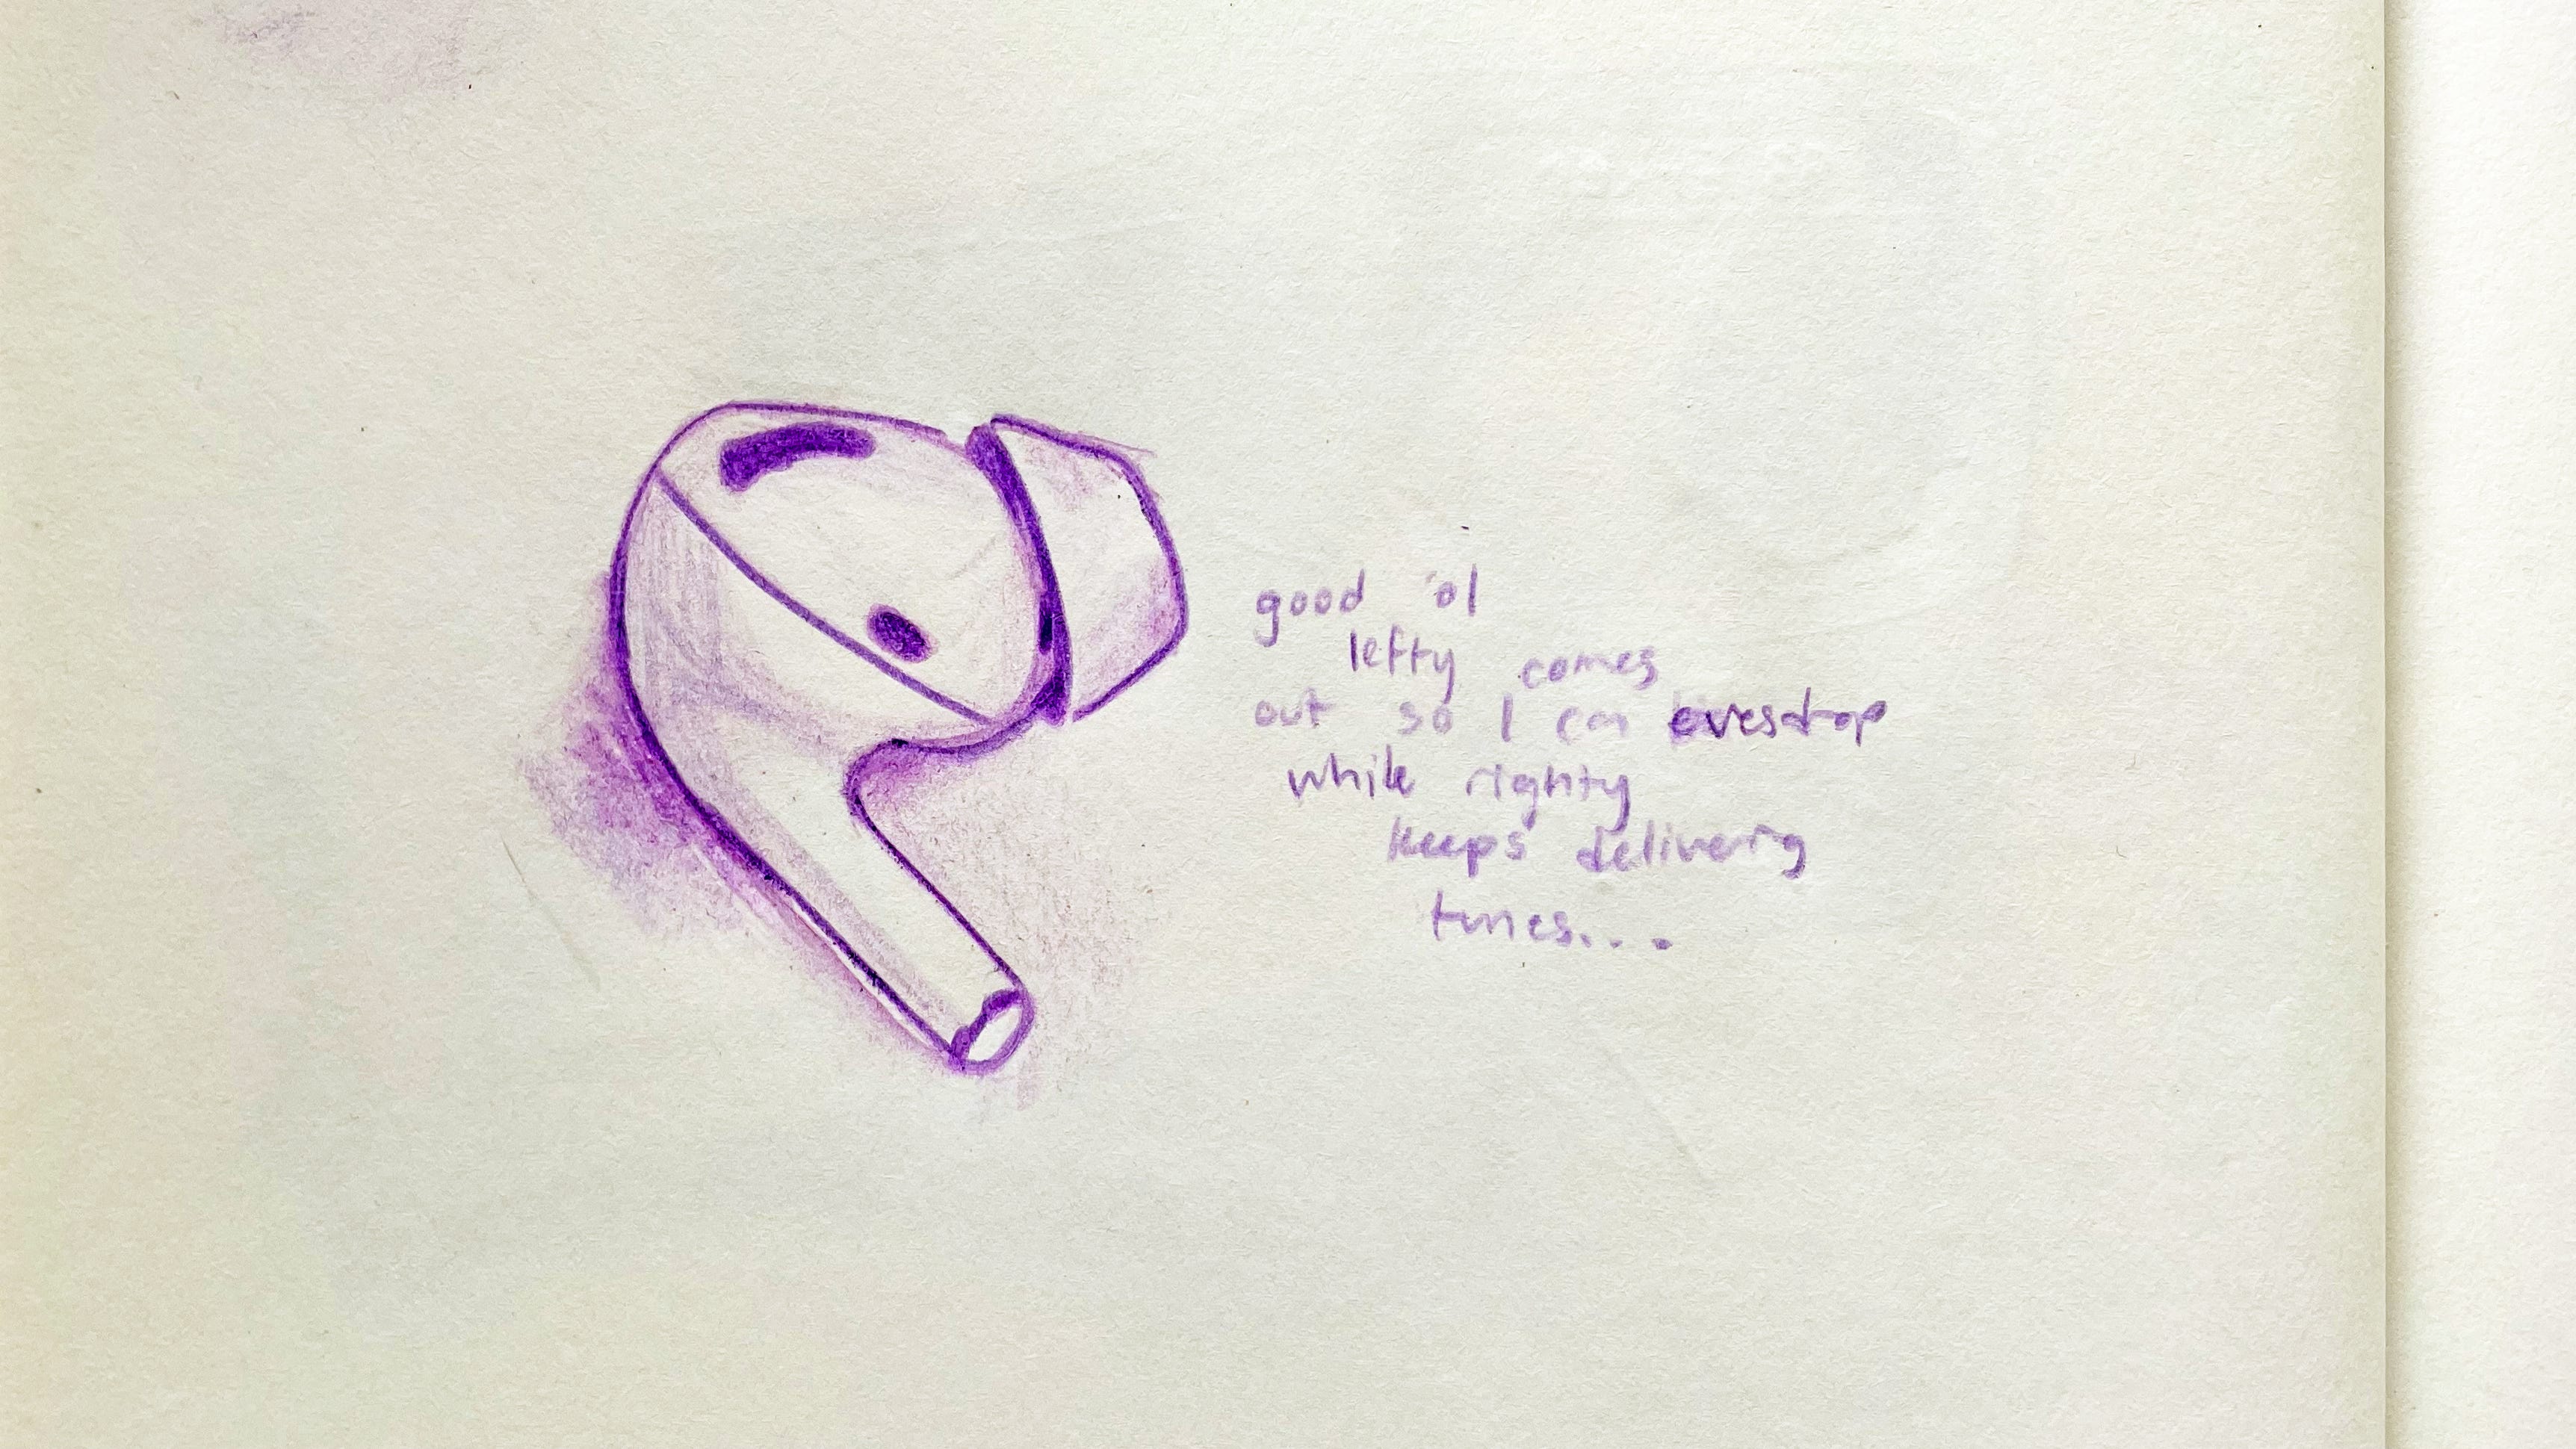 good 'ol
lefty comes
out so I can evesdrop
while righty
keeps delivering
tunes...